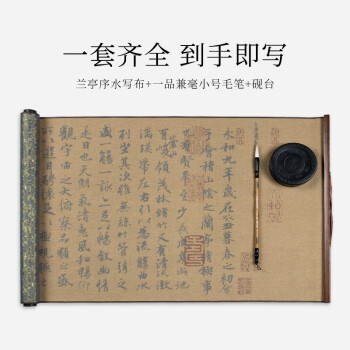 一套齐全 到手即写
兰亭序水写布+一品兼毫小号毛笔+砚台
永和九年歲在癸丑暮春之初
于會稽山陰之蘭亭脩稧事
也羣賢畢至少長咸集此地
崇山
有峻領茂林脩竹又有清流激
湍暎帶左右引以為流觴曲水
列坐其次雖無絲竹管弦之
盛一觴一詠亦足以暢敘幽情
是日也天朗氣清惠風和暢仰
觀宇宙之大俯察品類之盛